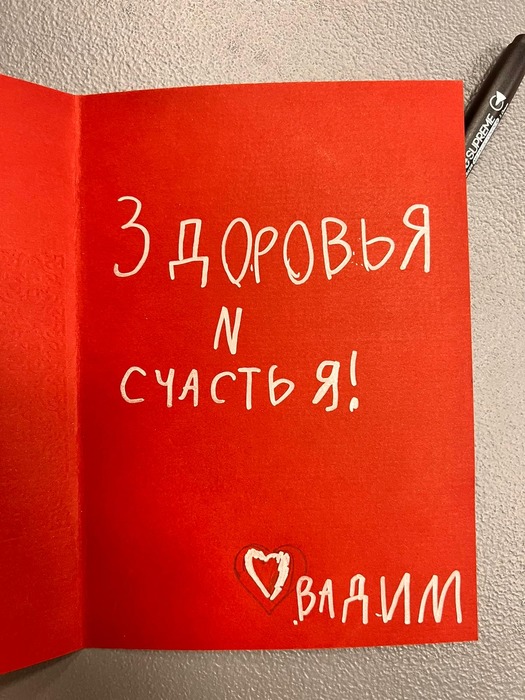 ЗДОРОВЬЯ
N
СЧАСТЬЯ!
ВАДИМ
SUPREME